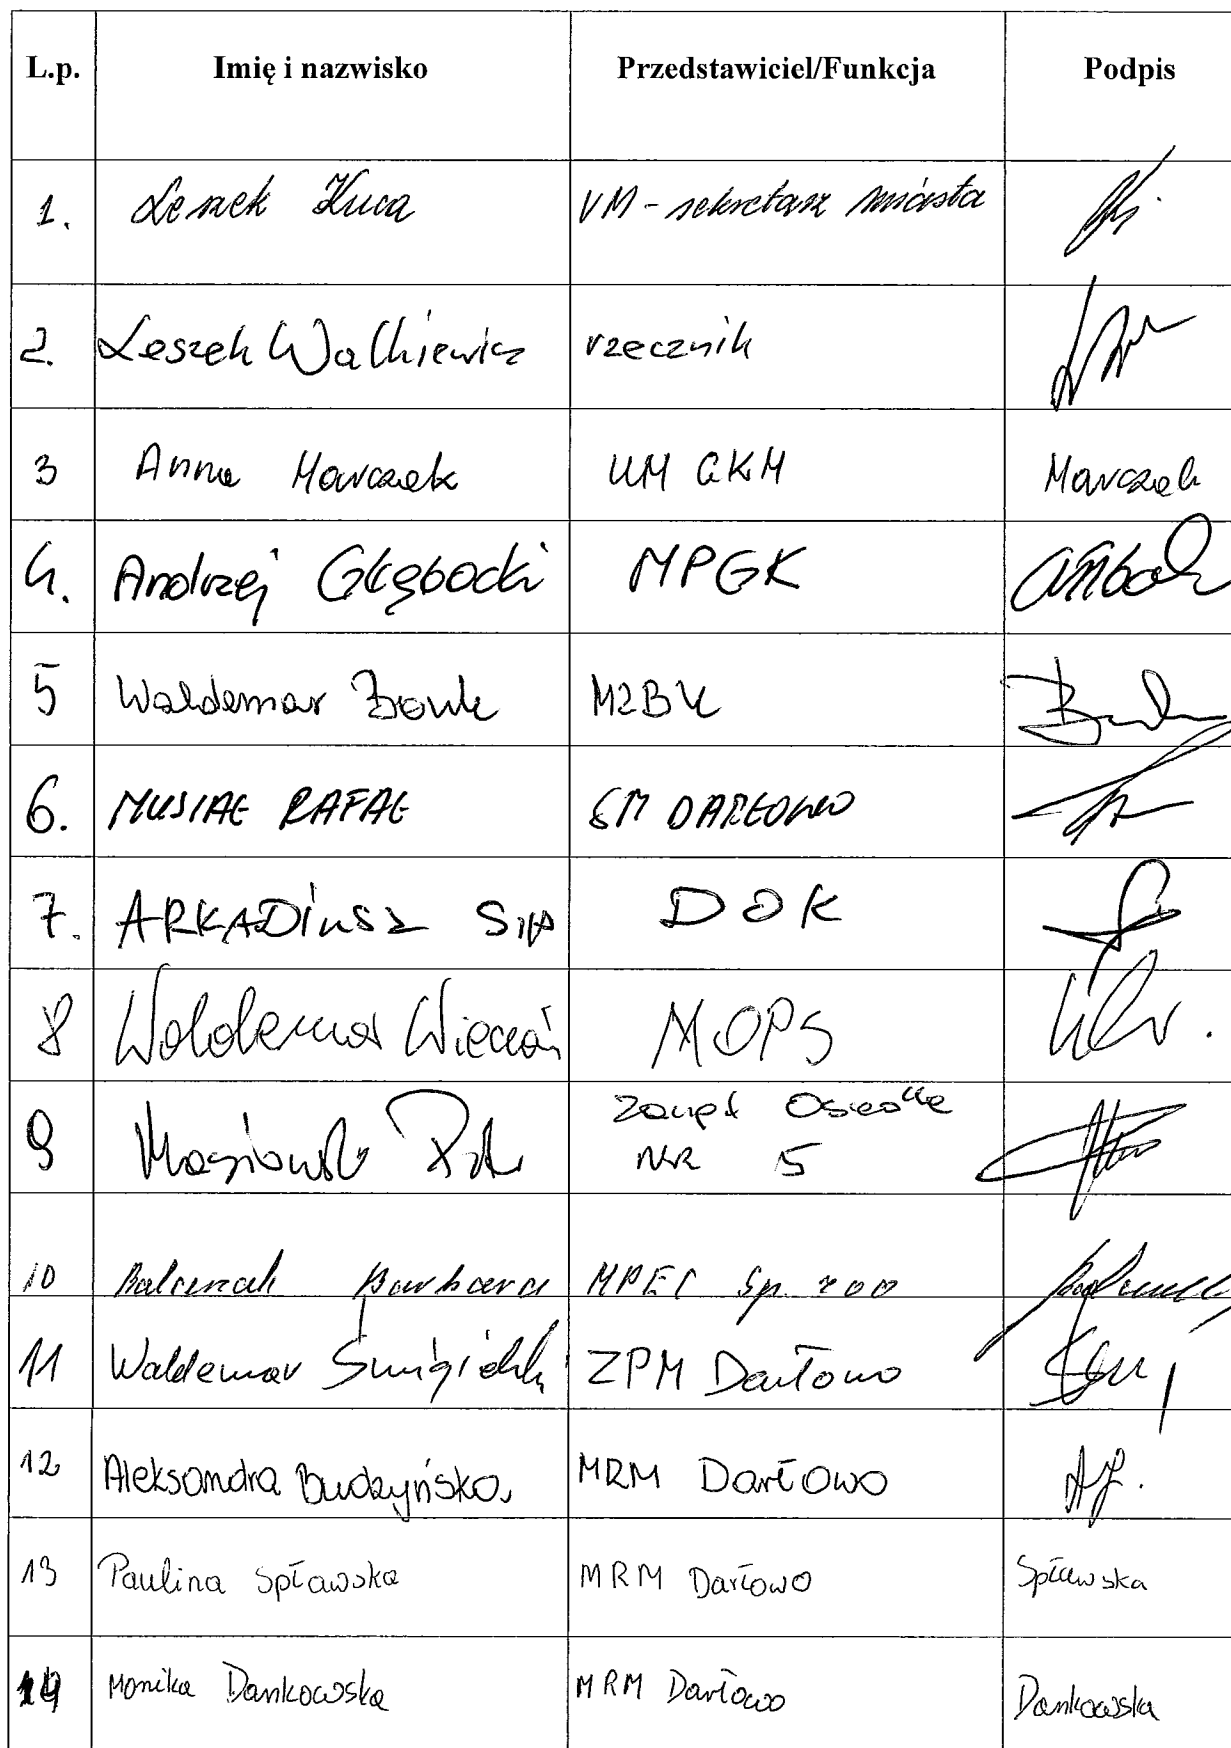 L.p. Imię i nazwisko Przedstawiciel/Funkcja Podpis
1. Leszek Kuca UM - sekretarz miasta
2. Leszek Walkiewicz rzecznik
3 Anna Marczak UM GKM Marczak
4. Andrzej Głębocki MPGK
5 Waldemar MZBK
6. MUSIAŁ RAFAŁ SM DARŁOWO
7. ARKADIUSZ SIP DOK
8 Waldemar MOPS
9 Zarząd Osiedla
NR 5
10 Balcerzak Barbara MPEC Sp. z o o
11 Waldemar Śmigielski ZPM Darłowo
12 Aleksandra Budzyńska MRM Darłowo
13 Paulina Spławska MRM Darłowo Spławska
14 Monika Dankowska MRM Darłowo Dankowska